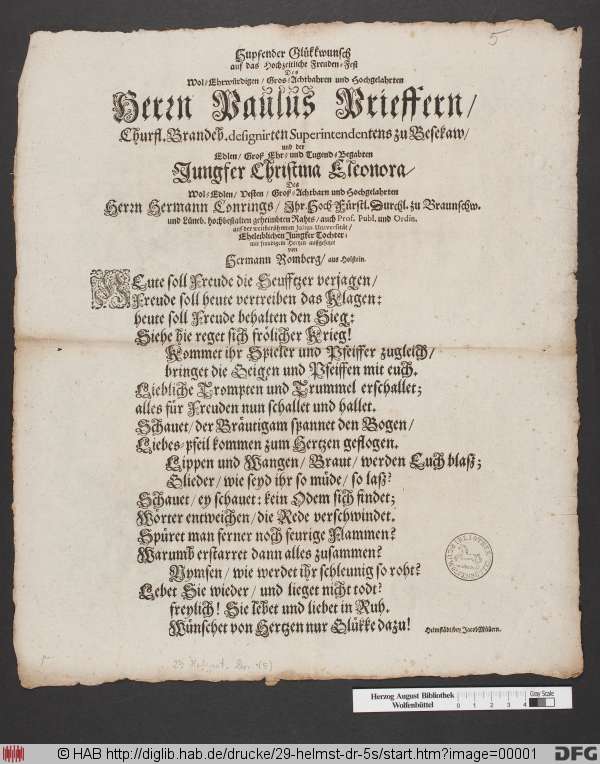 5
Hupfender Glükkwunsch
auf das Hochzeitliche Freuden-Fest
Des
Wol/Ehrwürdigen/ Gros/Achtbahren und Hochgelahrten
Herrn Paulus Prieffern/
Churfl. Brandeb. designirten Superintendentens zu Besekaw/
und der
Edlen/ Groß Ehr/ und Tugend-Begabten
Jungfer Christina Eleonora/
Des
Wol/Edlen/ Vesten/ Groß/Achtbarn und Hochgelahrten
Herrn Hermann Conrings/ Ihr. Hoch Fürstl. Durchl. zu Braunschw.
und Lüneb. hochbestalten geheimbten Rahts/ auch Prof. Publ. und Ordin.
auf der weitberühmten Julius Universität/
Eheleiblichen Jungfer Tochter/
mit freudigem Hertzen aufgesetzet
von
Hermann Romberg/ aus Holstein.
HEute soll Freude die Seufftzer verjagen/
Freude soll heute vertreiben das Klagen:
heute soll Freude behalten den Sieg:
Siehe hie reget sich frölicher Krieg!
Kommet ihr Spieler und Pfeiffer zugleich/
bringet die Geigen und Pfeiffen mit euch.
Liebliche Trompten und Trummel erschallet;
alles für Freuden nun schallet und hallet.
Schauet/ der Bräutigam spannet den Bogen/
Liebes-pfeil kommen zum Hertzen geflogen.
Lippen und Wangen/ Braut/ werden Euch blaß;
Glieder/ wie seyd ihr so müde/ so laß?
Schauet/ ey schauet: kein Odem sich findet;
Wörter entweichen/ die Rede verschwindet.
Spüret man ferner noch feurige Flammen?
Warumb erstarret dann alles zusammen?
Nymfen/ wie werdet ihr schleunig so roht?
Lebet Sie wieder/ und lieget nicht todt?
freylich! Sie lebet und liebet in Ruh.
Wünschet von Hertzen nur Glükke dazu!
Helmstädt/ bey Jacob Müllern.
Herzog August Bibliothek
Wolfenbüttel
0 1 2 3 4
Gray Scale
© HAB http://diglib.hab.de/drucke/29-helmst-dr-5s/start.htm?image=00001
DFG